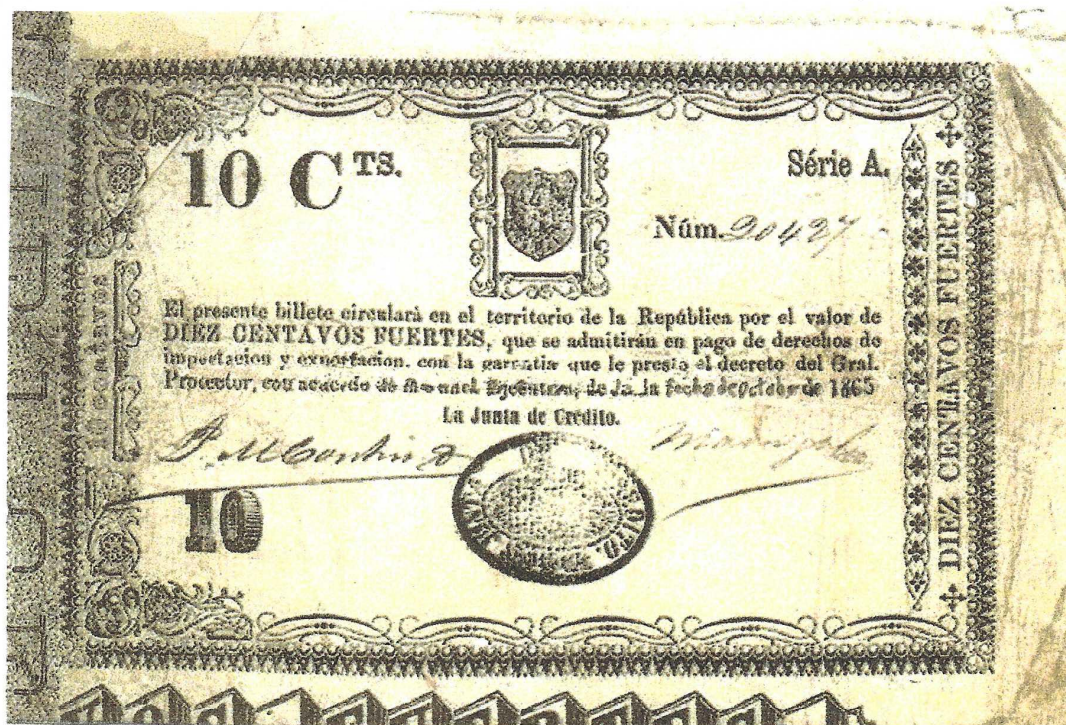 10 CTS.
Série A.
Núm. 20427
El presente billete circulará en el territorio de la República por el valor de
DIEZ CENTAVOS FUERTES, que se admitirán en pago de derechos de
importacion y exportacion, con la garantia que le presta el decreto del Gral.
Protector, con acuerdo de de la fecha de de 1865
La Junta de Crédito.
10
DIEZ CENTAVOS FUERTES